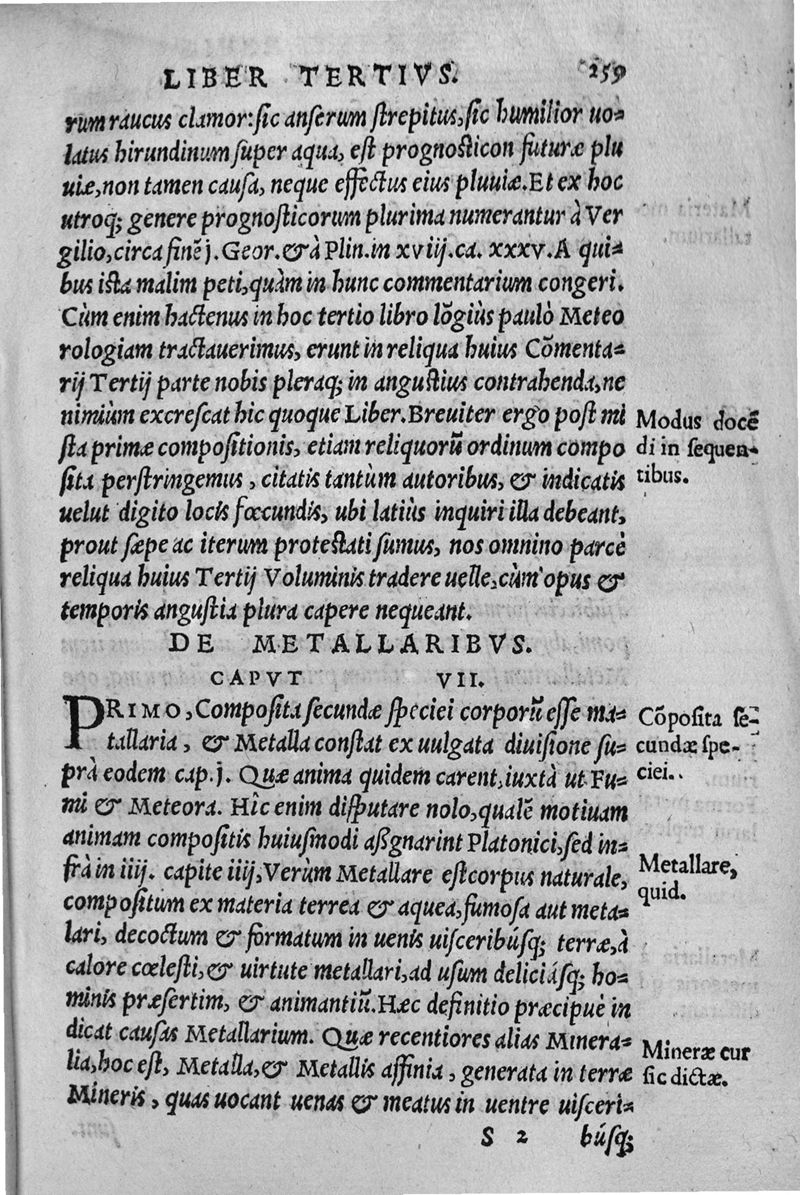 LIBER TERTIVS. 259
rum raucus clamor: sic anserum strepitus, sic humilior uo-
latus hirundinum super aqua, est prognosticon futuræ plu
uiæ, non tamen causa, neque effectus eius pluuiæ. Et ex hoc
utroq; genere prognosticorum plurima numerantur à Ver
gilio, circa finẽ j. Geor. & à Plin. in xviij. ca. xxxv. A qui-
bus ista malim peti, quàm in hunc commentarium congeri.
Cùm enim hactenus in hoc tertio libro lõgiùs paulò Meteo
rologiam tractauerimus, erunt in reliqua huius Cõmenta-
rij Tertij parte nobis pleraq; in angustius contrahenda, ne
nimiùm excrescat hic quoque Liber. Breuiter ergo post mi
sta primæ compositionis, etiam reliquorũ ordinum compo
sita perstringemus, citatis tantùm autoribus, & indicatis
uelut digito locis fœcundis, ubi latiùs inquiri illa debeant,
prout sæpe ac iterum protestati sumus, nos omnino parcè
reliqua huius Tertij Voluminis tradere uelle, cùm opus &
temporis angustia plura capere nequeant.
Modus docẽ
di in sequen-
tibus.
DE METALLARIBVS.
CAPVT VII.
PRIMO, Composita secundæ speciei corporũ esse ma-
tallaria, & Metalla constat ex uulgata diuisione su-
prà eodem cap. j. Quæ anima quidem carent, iuxtà ut Fu-
mi & Meteora. Hîc enim disputare nolo, qualẽ motiuam
animam compositis huiusmodi assignarint Platonici, sed in-
frà in iiij. capite iiij, Verùm Metallare est corpus naturale,
compositum ex materia terrea & aquea, fumosa aut meta-
lari, decoctum & formatum in uenis uisceribúsq; terræ, à
calore cœlesti, & uirtute metallari, ad usum deliciásq; ho-
minis præsertim, & animantiũ. Hæc definitio præcipuè in
dicat causas Metallarium. Quæ recentiores alias Minera-
lia, hoc est, Metalla, & Metallis affinia, generata in terræ
Mineris, quas uocant uenas & meatus in uentre uisceri-
Cõposita se-
cundæ spe-
ciei.
Metallare,
quid.
Mineræ cur
sic dictæ.
S 2 búsq;